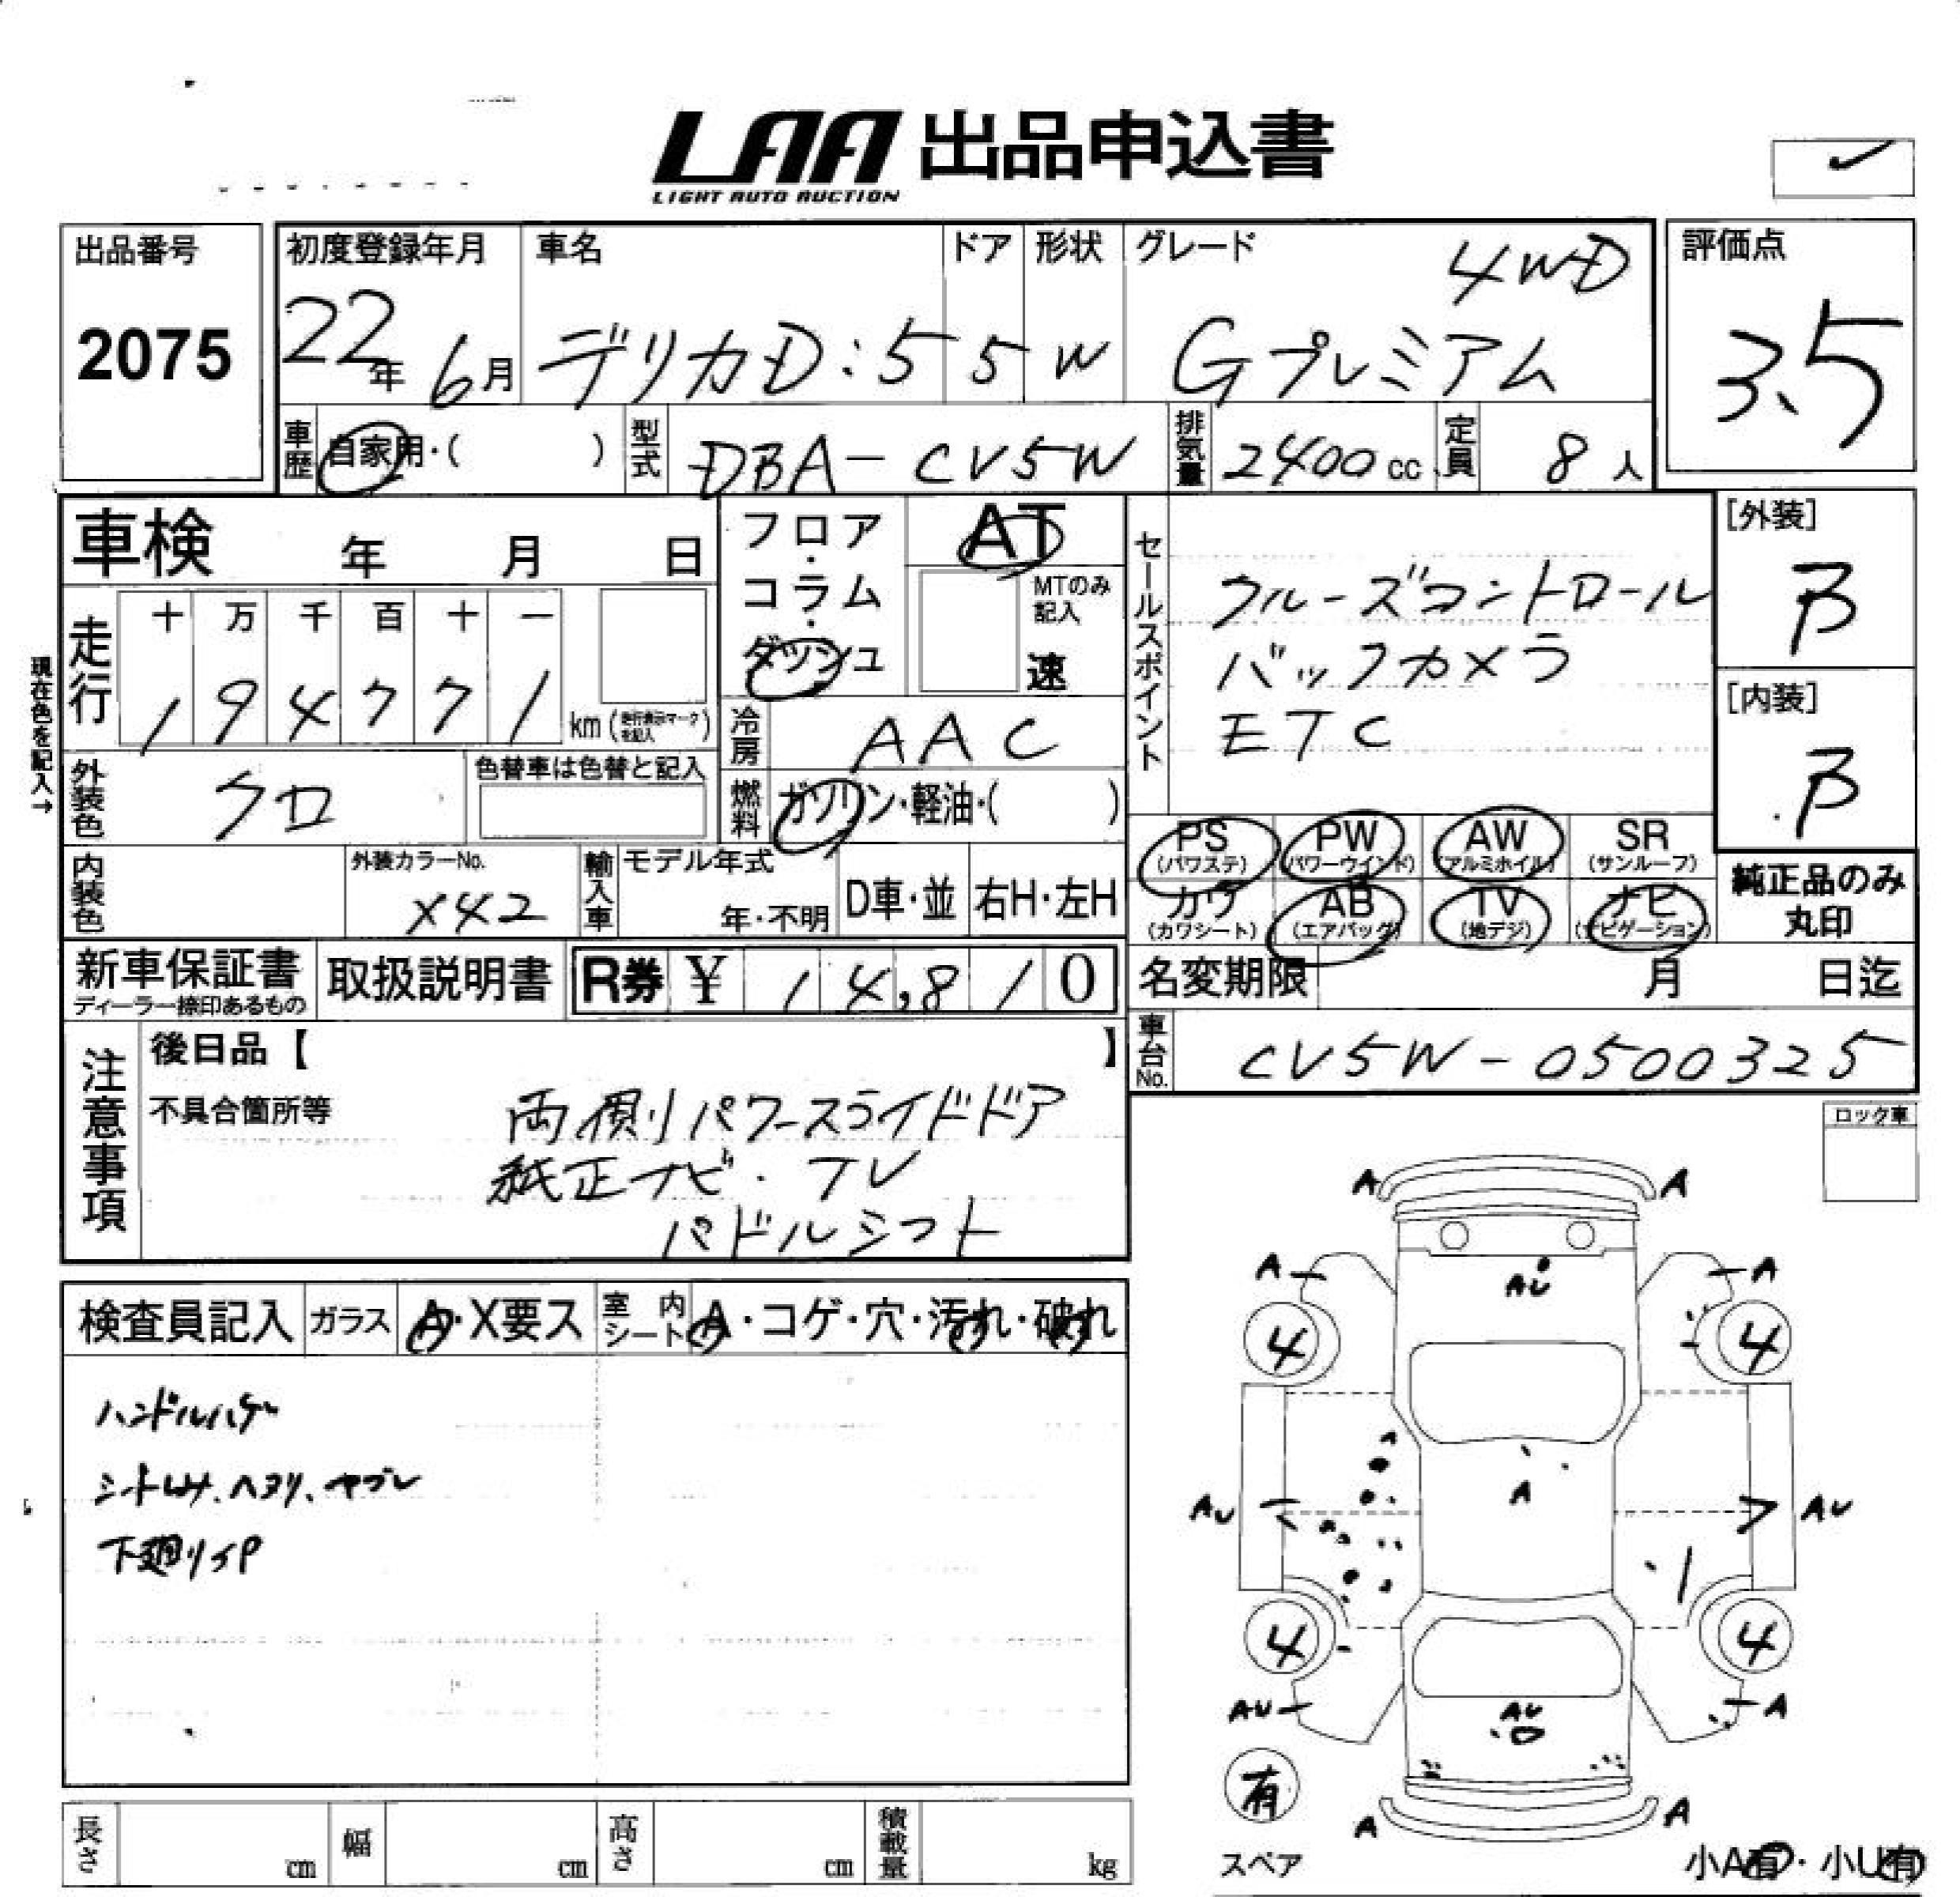 LAA 出品申込書
LIGHT AUTO AUCTION
出品番号
2075
初度登録年月
22年 6月
車名
デリカD:5
ドア
5
形状
W
グレード
4WD
Gプレミアム
評価点
3.5
車歴 自家用・( )
型式 DBA-CV5W
排気量 2400cc
定員 8人
車検 年 月 日
フロア・コラム・ダッシュ
AT
MTのみ記入
速
セールスポイント
クルーズコントロール
バックカメラ
ETC
[外装]
B
[内装]
B
現在色を記入→
走行
十 万 千 百 十 一
1 9 4 7 7 1 km (走行表示マークを記入)
冷房 AAC
外装色 クロ
色替車は色替と記入
燃料 ガソリン・軽油・( )
PS (パワステ) PW (パワーウインド) AW (アルミホイル) SR (サンルーフ)
カワ (カワシート) AB (エアバッグ) TV (地デジ) ナビ (ナビゲーション)
純正品のみ丸印
内装色
外装カラーNo.
X42
輸入車
モデル年式
年・不明
D車・並
右H・左H
新車保証書
ディーラー捺印あるもの
取扱説明書
R券 ¥ 14,810
名変期限 月 日迄
車台No. CV5W-0500325
注意事項
後日品【 】
不具合箇所等
両側パワースライドドア
純正ナビ・TV
パドルシフト
ロック車
検査員記入
ガラス A・X要ス
室内シート A・コゲ・穴・汚れ・破れ
ハンドルハゲ
シートしみ、ヘタリ、ヤブレ
下廻りサP
A A
A A
AU
4 4
A
A
AU AU
4 4
AU A
AU
有
スペア
A A
小A有・小U有
長さ cm
幅 cm
高さ cm
積載量 kg